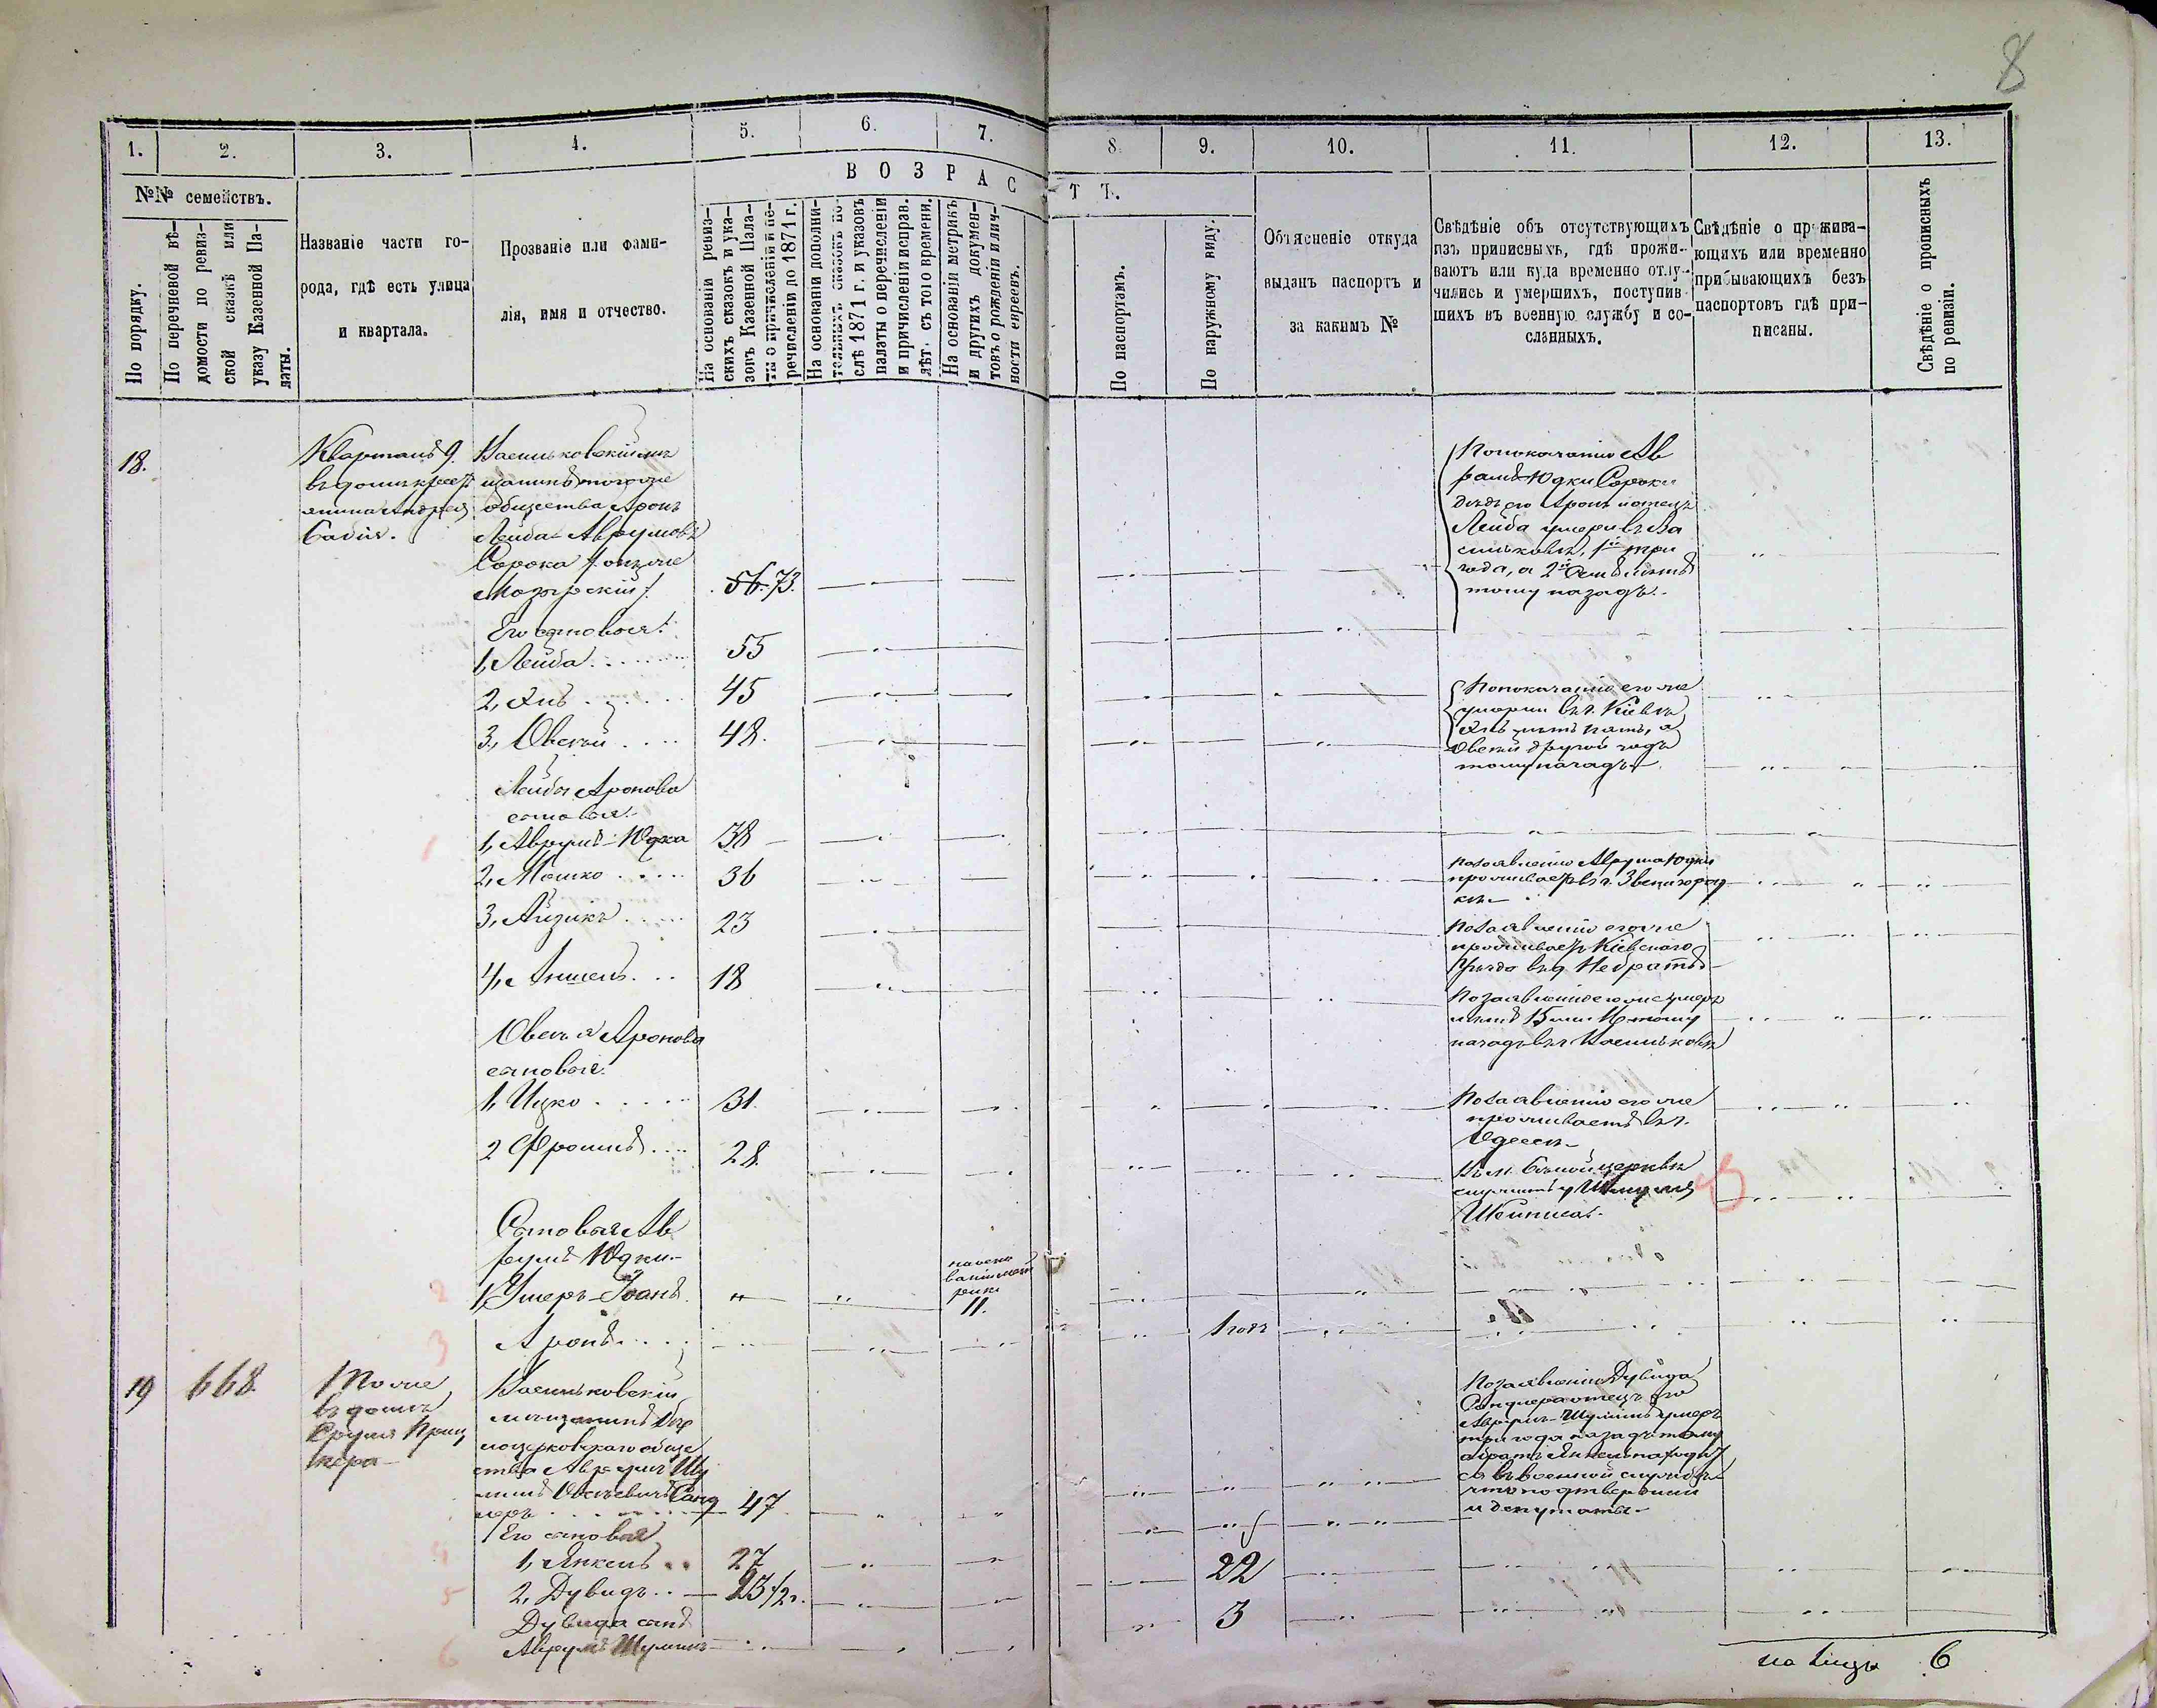 8
1.
2.
3.
4.
5.
6.
7.
8.
9.
10.
11.
12.
13.
№№ семействъ.
ВОЗРАСТЪ.
По порядку.
По перечневой вѣ-
домости по ревиз-
ской сказкѣ или
указу Казенной Па-
латы.
Названіе части го-
рода, гдѣ есть улица
и квартала.
Прозваніе или фами-
лія, имя и отчество.
На основаніи ревиз-
скихъ сказокъ и ука-
зовъ Казенной Пала-
ты о причисленіи и пе-
речисленіи до 1871 г.
На основаніи дополни-
тельныхъ сказокъ по-
слѣ 1871 г. и указовъ
палаты о перечисленіи
и причисленіи исправ.
лѣт. съ того времени.
На основаніи метрикъ
и другихъ докумен-
товъ о рожденіи и лич-
ности евреевъ.
По паспортамъ.
По наружному виду.
Объясненіе откуда
выданъ паспортъ и
за какимъ №
Свѣдѣніе объ отсутствующихъ
изъ приписныхъ, гдѣ прожи-
ваютъ или куда временно отлу-
чились и умершихъ, поступив-
шихъ въ военную службу и со-
сланныхъ.
Свѣдѣніе о прожива-
ющихъ или временно
прибывающихъ безъ
паспортовъ гдѣ при-
писаны.
Свѣдѣніе о прописныхъ
по ревизіи.
18.
Кварталъ 9.
въ домѣ крест
янина Андрея
Бабія.
Васильковскій мѣ
щанинъ того же
общества Аронъ
Лейба Аврумовъ
Сорока /: онъ же
Мозырскій /:
56. 73.
По показанію Ав
рама Юдки Сороки
дѣдъ его Аронъ и отецъ
Лейба умерли въ Ва
сильковѣ, 1й три
года, а 2й семь лѣтъ
тому назадъ.
Его сыновья:
1, Лейба 55
2, Янъ 45
3, Овсей 48.
По показанію его же
умерли въ г. Кіевѣ
Янъ лѣтъ пять, а
Овсей другой годъ
тому назадъ
Лейбы Аронова
сыновья:
1
1, Аврумъ-Юдка 38
2, Мошко 36
По заявленію Аврума Юдки
проживаетъ въ г. Звенигород
кѣ
3, Айзикъ 23
По заявленію его же
проживаетъ Кіевскаго
уѣзда въ д. Небратѣ
4, Аншель 18
По заявленію его же умеръ
лѣтъ 15 или 16 тому
назадъ въ г. Васильковѣ
Овсея Аронова
сыновья:
1, Ицко 31.
По заявленію его же
проживаетъ въ г.
Одессѣ
2 Фроимъ 28.
Въ м. Бѣлой церкви
служитъ у Шмуля
Сыновья Ав
рума Юдки
2
1, Умеръ-Іоанъ
на осно
ваніи мет
рики
11.
3
Аронъ 1 годъ
19
668.
То же
въ домѣ
Сруля Приц
кера
Васильковскій
мѣщанинъ Бѣл
оцерковскаго обще
ства Аврумъ Шу
лимъ Овсѣевичъ Санд
леръ 47
По заявленію Дувида
Сандлера отецъ его
Аврумъ-Шулимъ умеръ
три года назадъ тому
а братъ Янкель находит
ся въ военной службѣ
что подтвердили
и депутаты
Его сыновья
4
1, Янкель 27
5
2, Дувидъ 23 1/2 22
Дувида сынъ
6
Аврумъ Шулимъ 3
на лицо 6